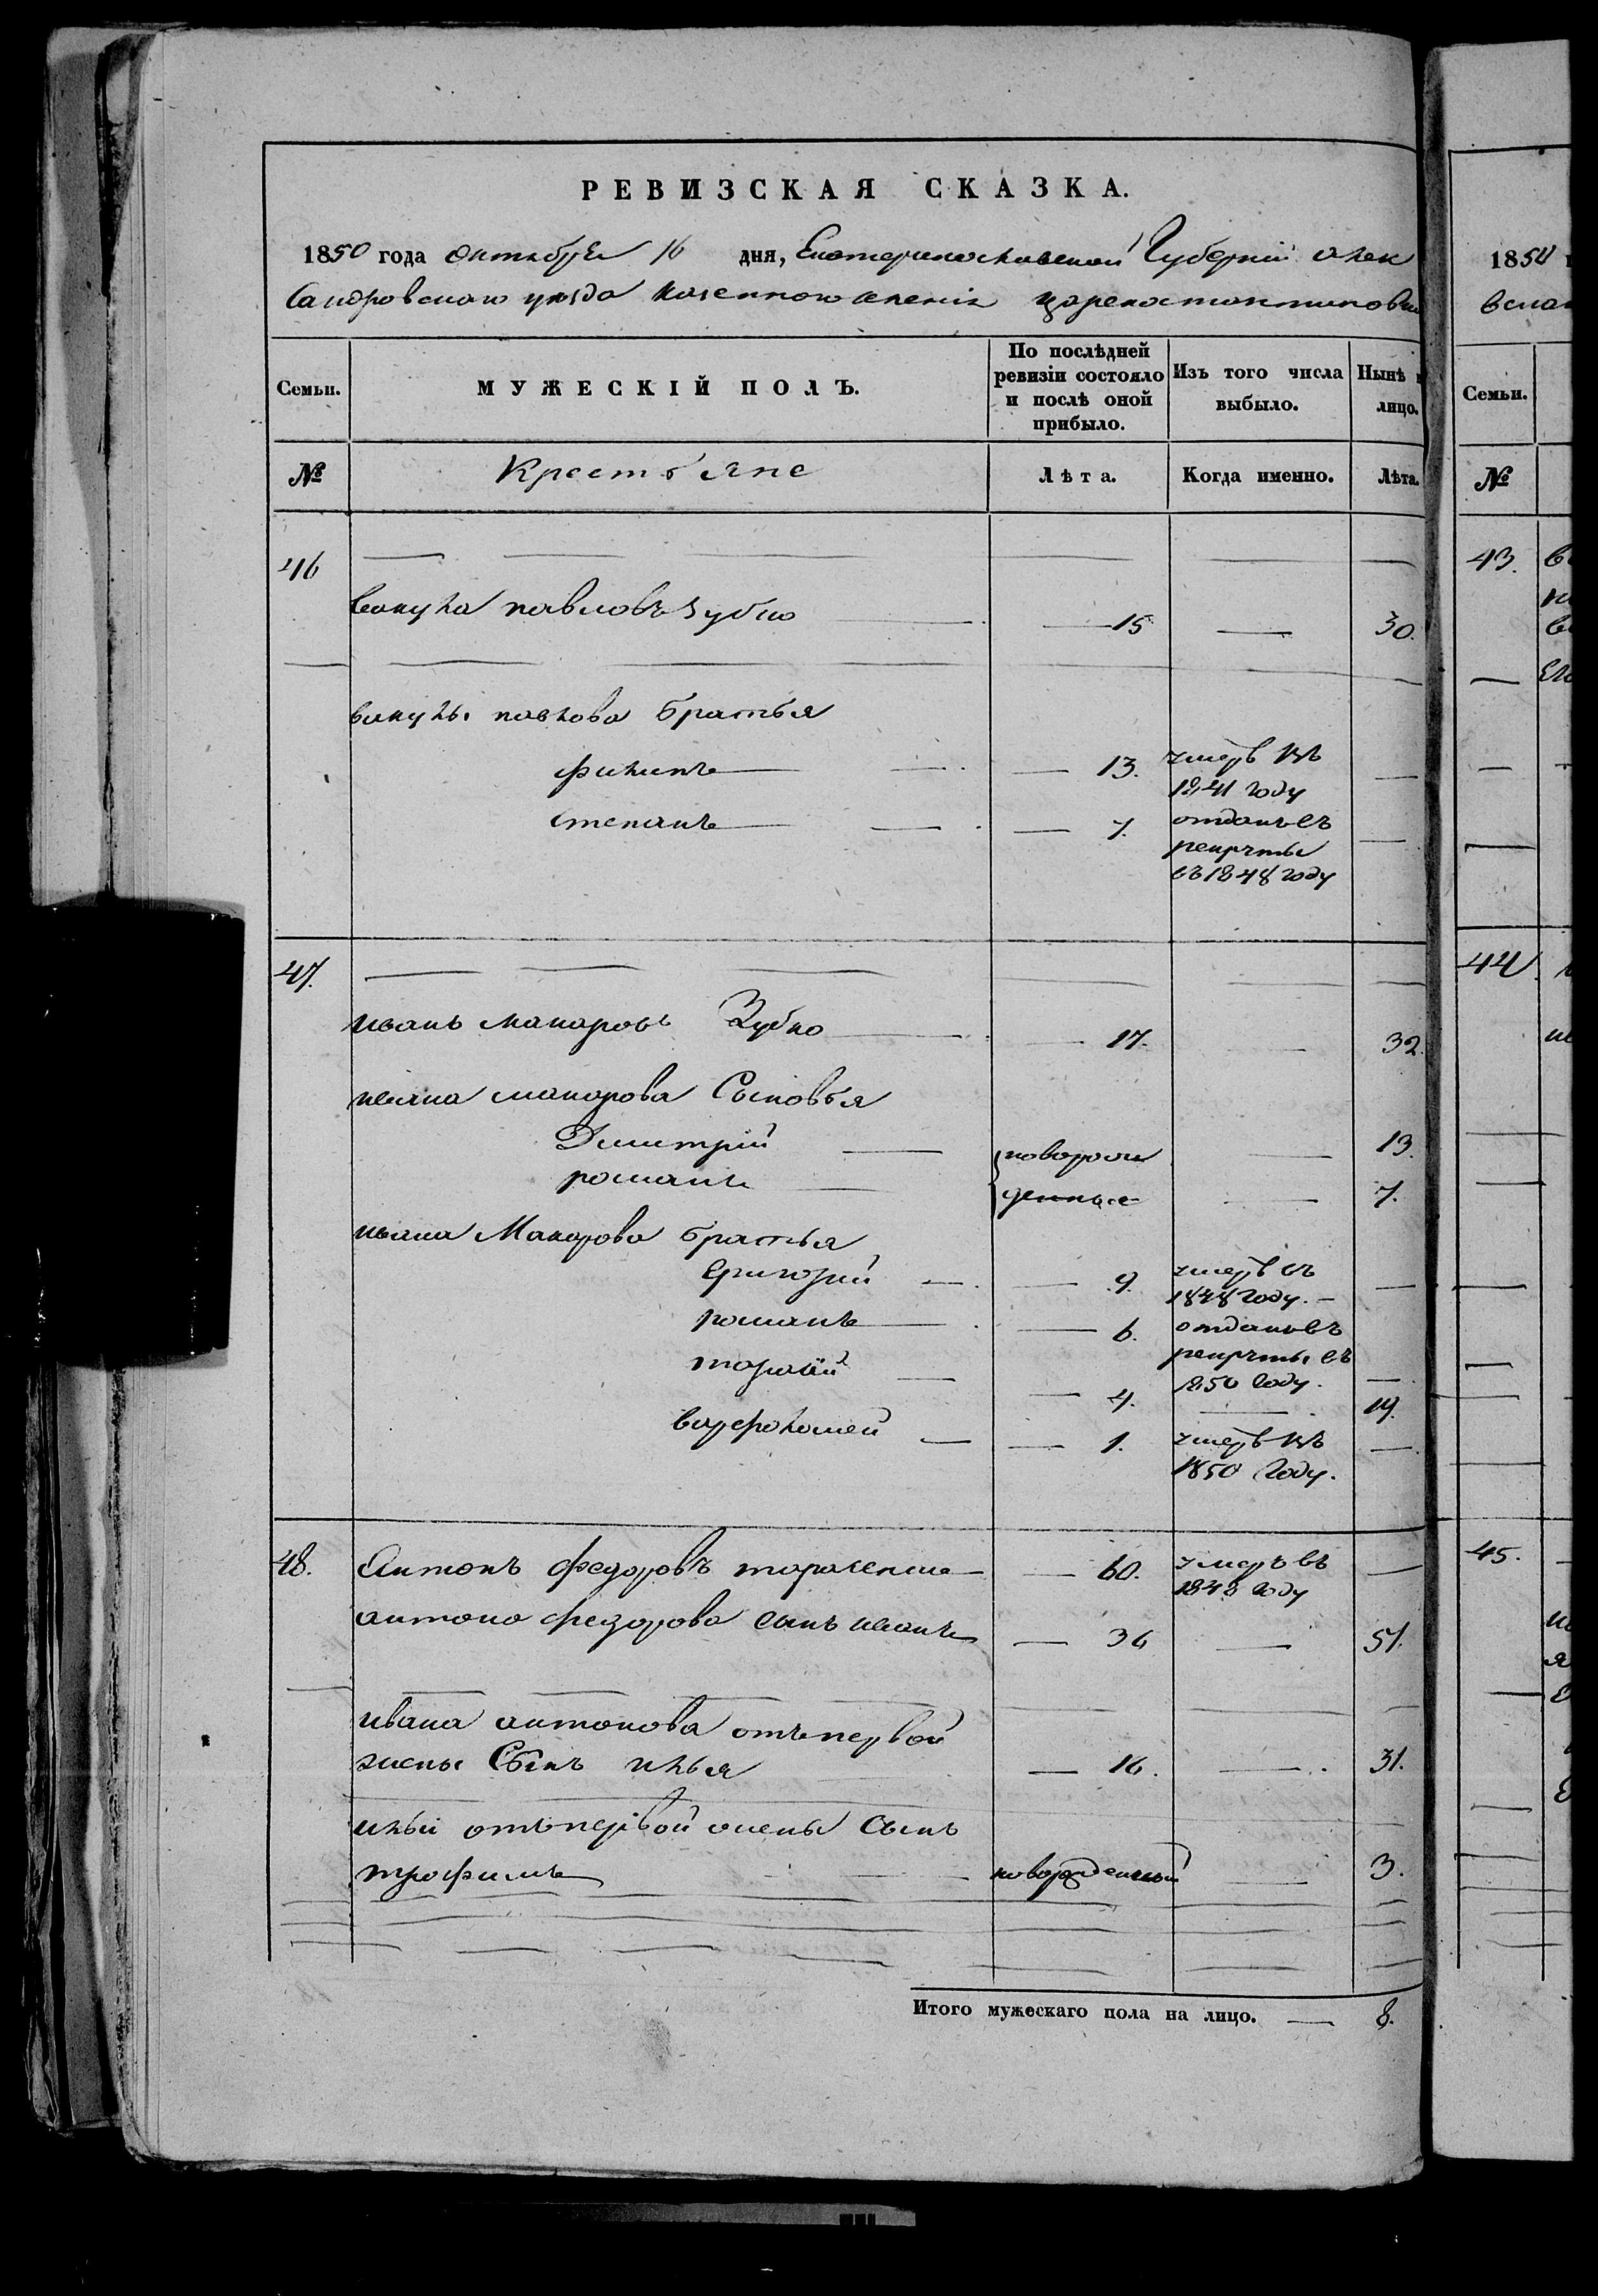 РЕВИЗСКАЯ СКАЗКА.
1850 года октября 16 дня, Екатеринославской Губернии алек
сандровского уезда казенного селения цареконстантиновки
Семьи. МУЖЕСКІЙ ПОЛЪ. По послѣдней ревизіи состояло и послѣ оной прибыло. Изъ того числа выбыло. Нынѣ лицо.
№ Крестьяне Лѣта. Когда именно. Лѣта.
46
вакула павловъ зубко 15 30.
вакулы павлова братья
филипъ 13. умеръ въ
1841 году
степанъ 7. отданъ въ
рекруты
въ 1848 году
47.
иванъ макаровъ Зубко 17. 32.
ивана макарова Сыновья
Дмитрій новорож 13.
романъ денные 7.
ивана Макарова братья
Григорій 9. умеръ въ
1848 году.
романъ 6. отданъ въ
рекруты въ
1850 году.
4. 19.
варфоломей 1. умеръ въ
1850 году.
48. Антонъ федоровъ 60. умеръ въ
году
антона федорова сынъ иванъ 36 51.
ивана антонова отъ первой
жены Сынъ илья 16. 31.
ильи отъ первой жены Сынъ
трофимъ новорожденный 3.
Итого мужескаго пола на лицо. 8.
1850
Семьи.
№
43.
44
45.